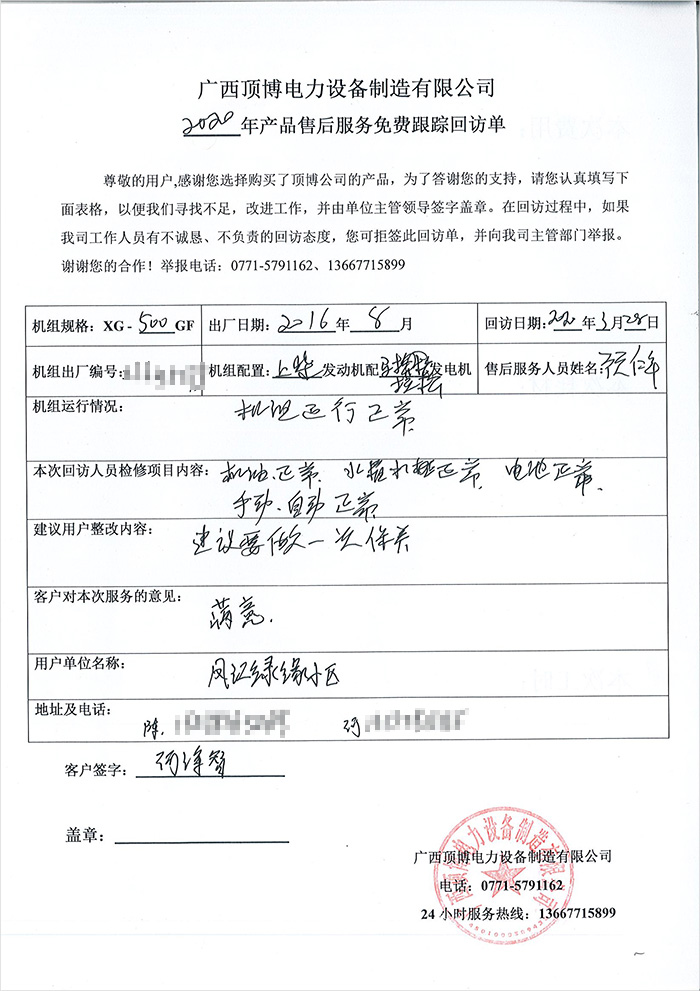 广西顶博电力设备制造有限公司
2020年产品售后服务免费跟踪回访单
尊敬的用户,感谢您选择购买了顶博公司的产品，为了答谢您的支持，请您认真填写下
面表格，以便我们寻找不足，改进工作，并由单位主管领导签字盖章。在回访过程中，如果
我司工作人员有不诚恳、不负责的回访态度，您可拒签此回访单，并向我司主管部门举报。
谢谢您的合作！举报电话：0771-5791162、13667715899
机组规格：XG-500GF 出厂日期：2016年8月 回访日期：2020年3月28日
机组出厂编号: 机组配置：上柴发动机配发电机 售后服务人员姓名:
机组运行情况： 机组运行正常
本次回访人员检修项目内容： 机油.正常. 水箱水超正常. 电池正常.
手动.自动正常
建议用户整改内容： 建议要做一次保养
客户对本次服务的意见： 满意.
用户单位名称： 凤江绿缘小区
地址及电话： 陈. 何
客户签字：何
盖章：
广西顶博电力设备制造有限公司
电话：0771-5791162
24小时服务热线：13667715899